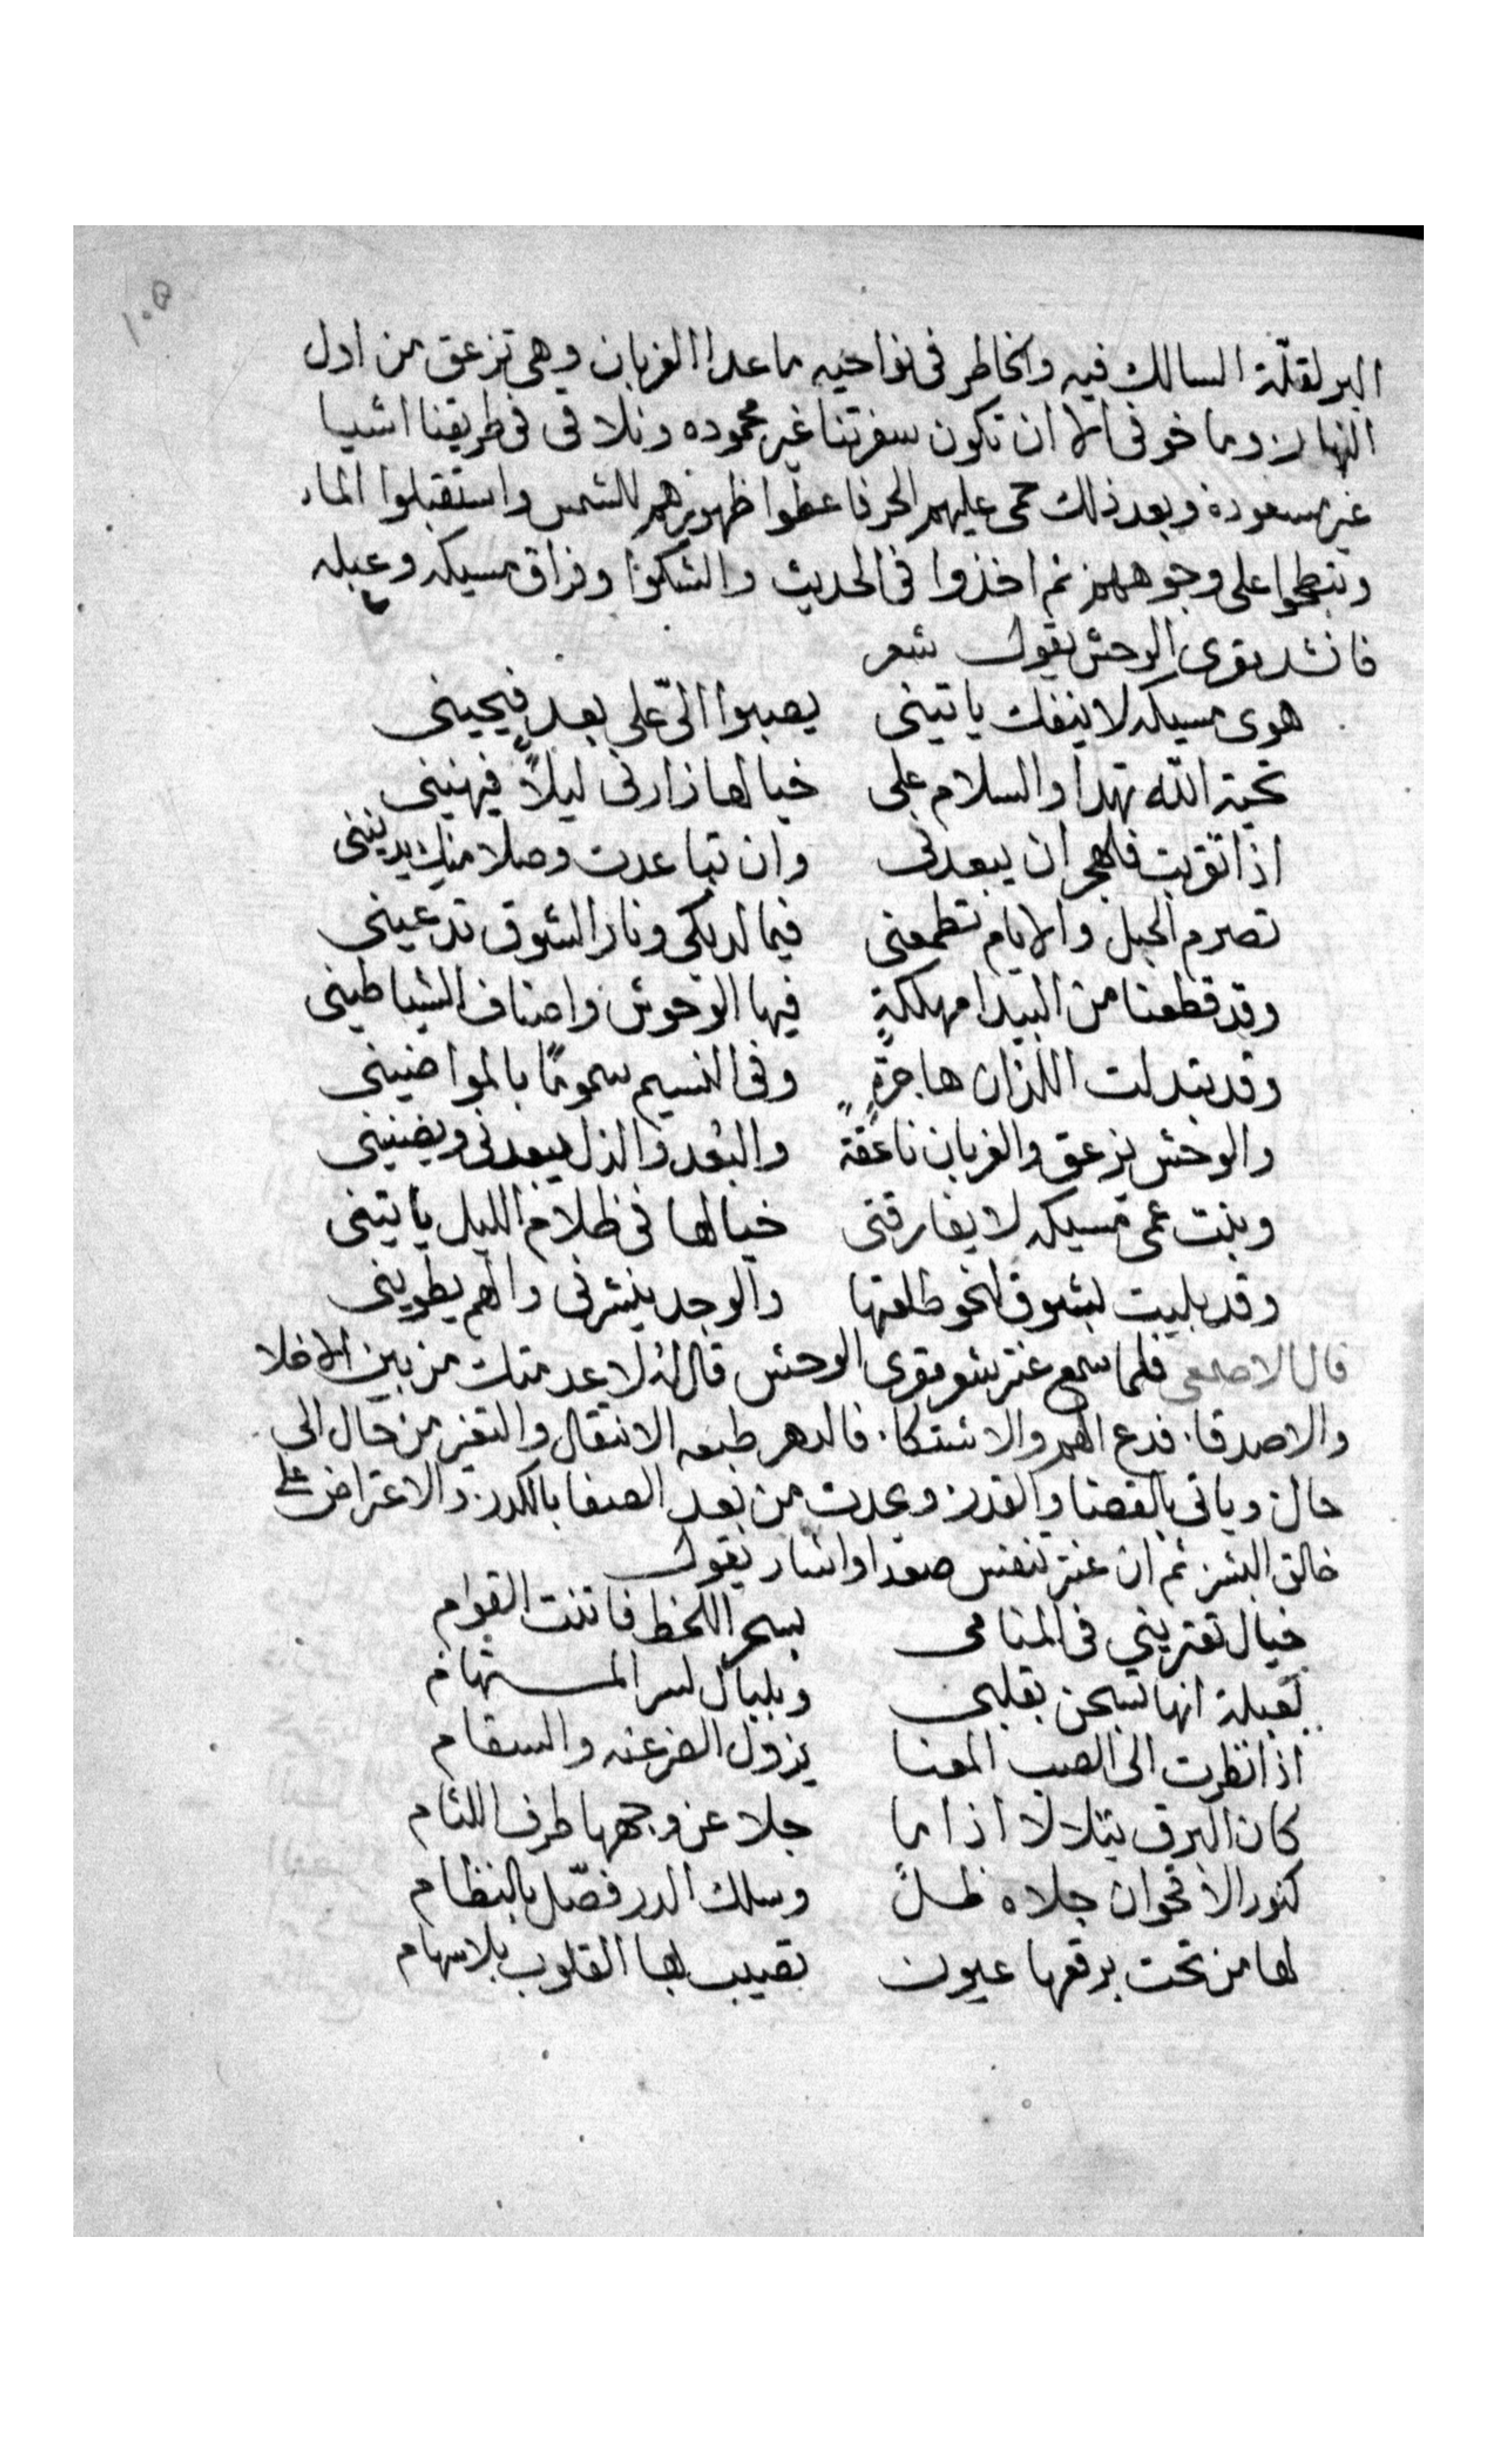 ١٠٥
البر لقلّة السالك فيه والخاطر فى نواحيه ما عدا الغربان وهى تزعق من اول
النهار وما خوفى الا ان تكون سفرتنا غير محموده ونلاقى فى طريقنا اشيا
غير مسعودة وبعد ذلك حمى عليهم الحر فاعطوا ظهورهم للشمس واستقبلوا الماء
وتبطحوا على وجوههم ثم اخذوا فى الحديث والشكوا وفراق مسيكه وعبله
فانشد مقرى الوحش يقول شعر
هوى مسيكه لا ينفك ياتينى يصبوا الىّ على بعد فيحينى
تحية الله تهدا والسلام على خيالها زارنى ليلاً فيهنينى
اذا تقربت فالهجران يبعدنى وان تباعدت وصلا منك يدنينى
تصرم الحبل والايام تطمعنى فيما لديكى ونار الشوق تدعينى
وقد قطعنا من البيدا مهلكةٍ فيها الوحوش واصناف الشياطينى
وقد تبدلت اللذان هاجرةٍ وفى النسيم سمومًا بالمواضينى
والوحش تزعق والغربان ناعقةٍ والبُعد والذل يبعدنى ويضنينى
وبنت عمى مسيكه لا يفارقنى خيالها فى ظلام الليل ياتينى
وقد بليت بشوق نحو طلعتها والوجد ينشرنى والهم يطوينى
قال الاصمعى فلما سمع عنتر شعر مقرى الوحش قال له لا عدمتك من بين الاخلا
والاصدقاء فدع الهم والاشتكاء فالدهر طبعه الانتقال والتغير من حال الى
حال وياتى بالقضا والقدر ويحدث من بعد الصفا بالكدر والاعتراض على
خالق البشر ثم ان عنتر تنفس صعدا واشار يقول
خيال تعتريني فى المنامى بسحر اللحظ فاتنت القوام
لعبلة انها تسحن بقلبى وبلبال لسر المستهام
اذا نظرت الى الصب المعنا يزول الضر عنه والسقام
كان البرق يتلالا اذا ما جلا عن وجهها طرف اللثام
كنور الاقحوان جلاه طلً وسلك الدر فصّل بالنظام
لها من تحت برقعها عيون تصيب بها القلوب بلا سهام